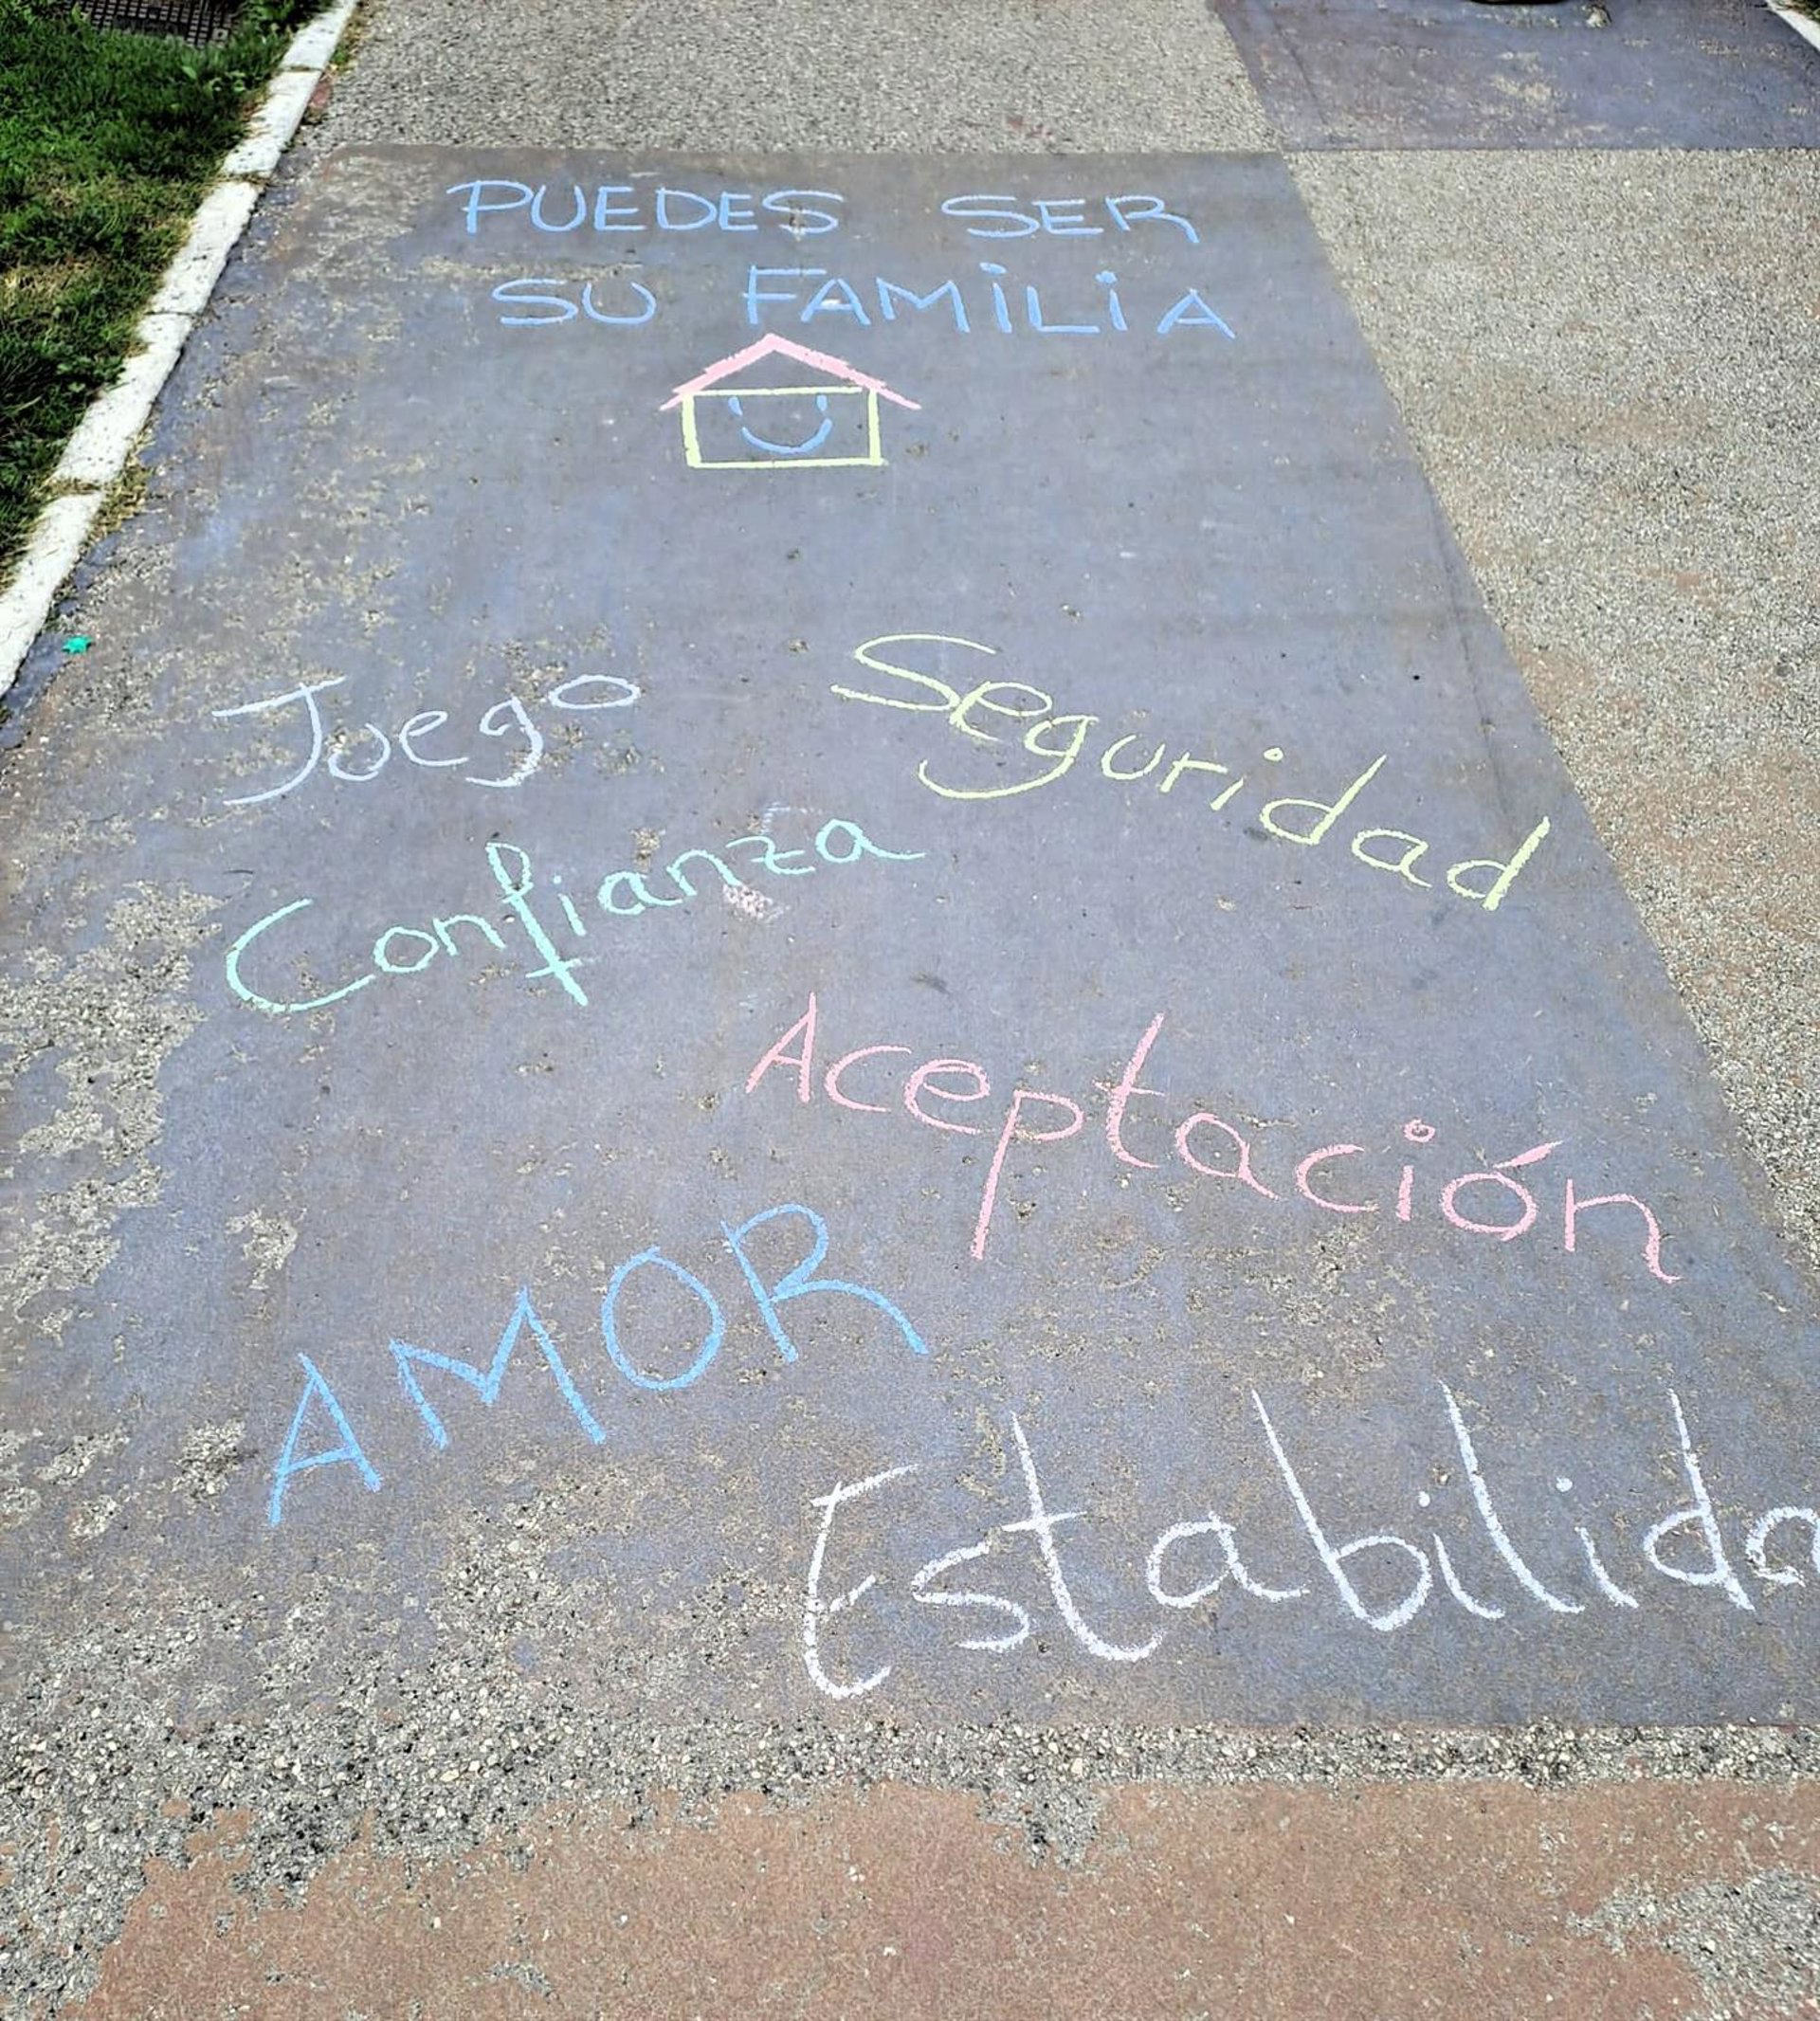 PUEDES SER
SU FAMILIA
Juego
Seguridad
Confianza
Aceptación
AMOR
Estabilida